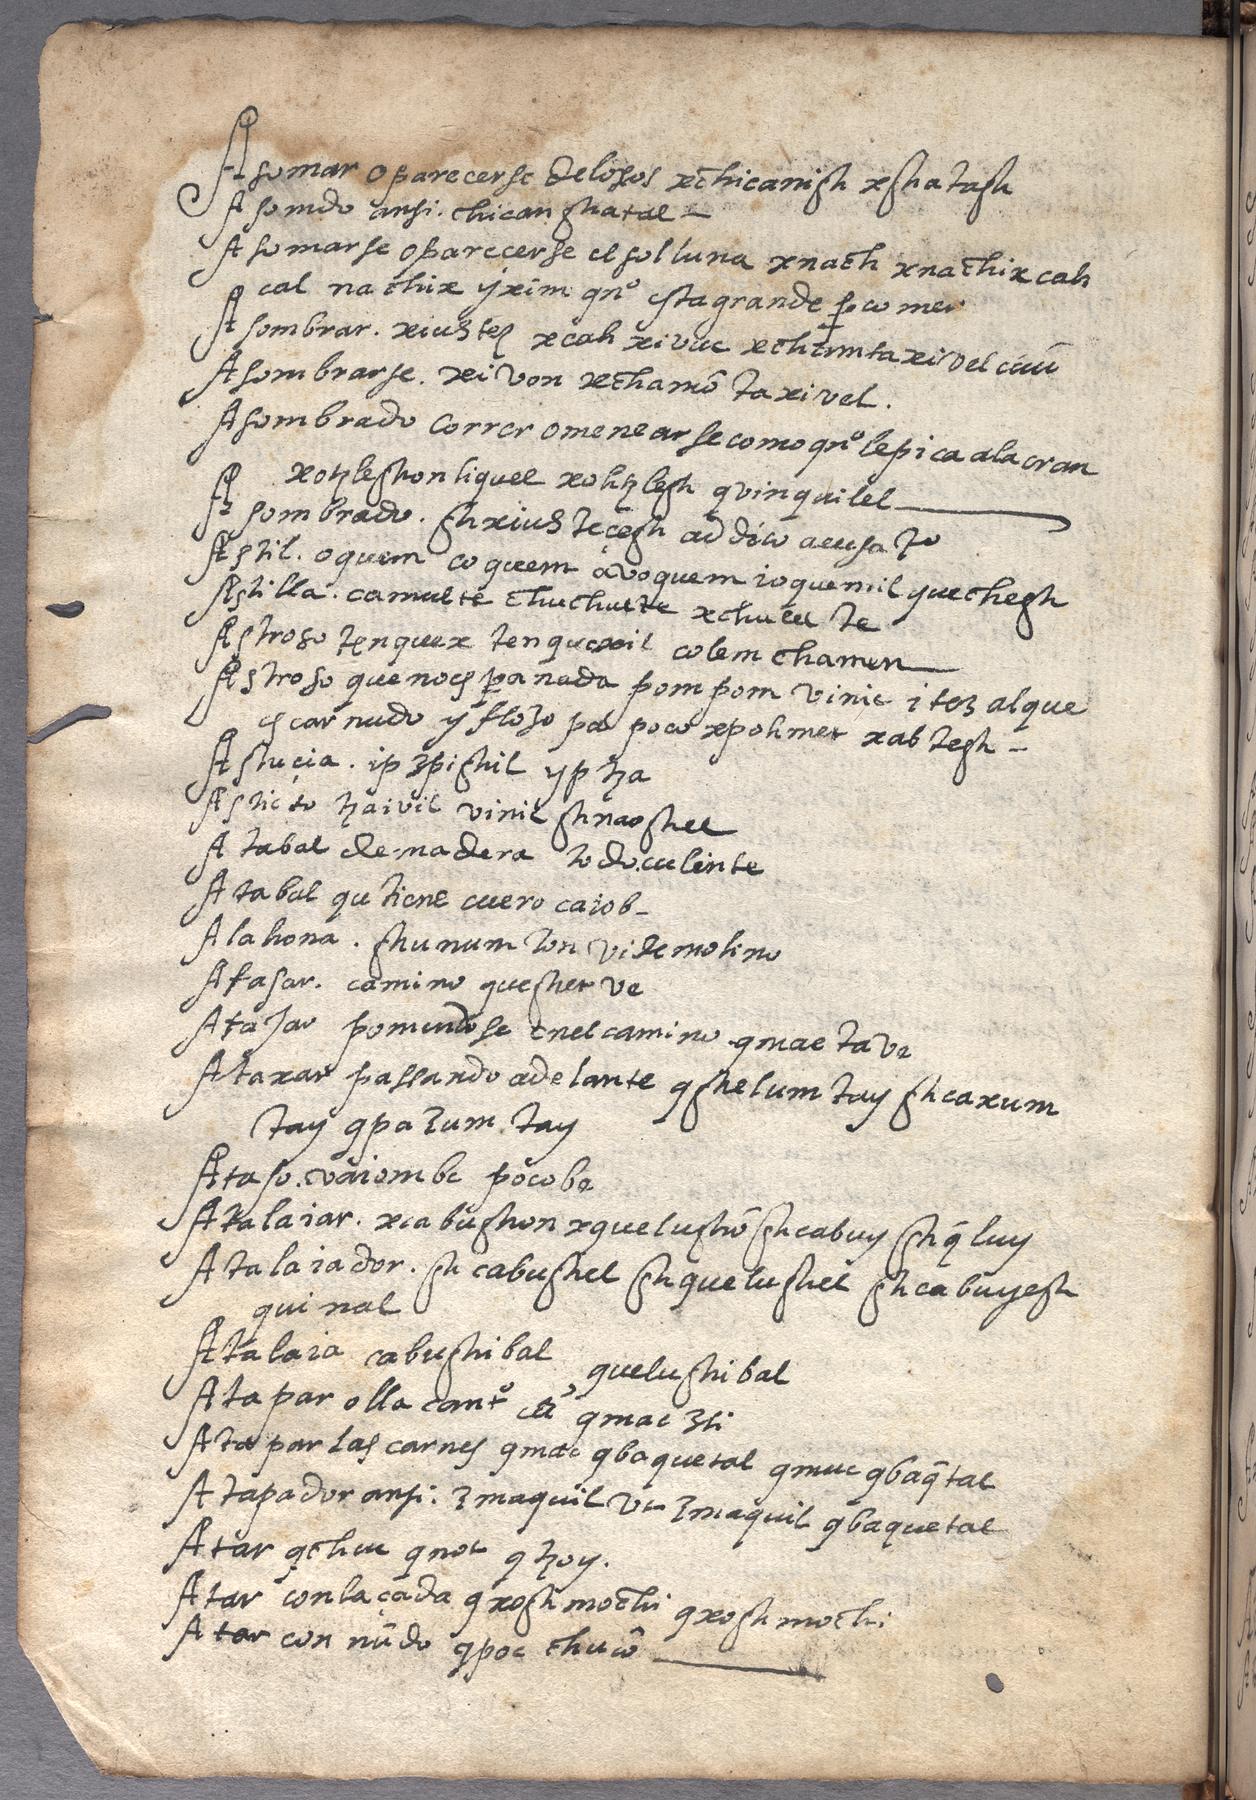 Asomar o parecerse delos os xchicanigh xghatagh
Asomdo ansi. chican ghatal
Asomarse oparecerse el sol luna xnach xnachix cah
cal nachix yxim qnº esta grande p comer
Asombrar. xicah xivuc
Asombrarse. xivon xchamô taxivel.
Asombrado correr omenearse como qnº le pica alacran
xotzleghon liquel xohtzlegh quinquilel
Asombrado. ghxiughtecegh ad dico acusato
Astil. oquem coquem avoquem ioquemil yuechegh
Astilla. camulte chuchulte xchucul te
Astroso tenquex tenquexil colem chamen
Astroso que no es pa nada pom pom vinic itoz alque
escarnudo y floxo pa poco xpohmet xabtegh
Astucia. ip zpighil yp tza
Asticto tzaivil vinic ghnaoghel
Atabal de madera todo. culinte
Atabal qu tiene cuero caiob
Atahona. ghunumton vi de molino
Atasar. camino queghet ve
Atajar poniendose enel camino qmac ta ve
Ataxar passando adelante qghelum tay ghcaxum
tay qpazum. tay
Ataso. vaiombe pocobe
Atalaiar. xcabughon xquelughô ghcabuy ghq̃luy
Atalaiador. gh cabughel ghquelughel ghcabuyegh
quinal
Atalaia cabughibal quelughibal
Atapar olla cantº câ qmac zti
Atapar las carnes qmac qbaquetal qmuc qbaq̃tal
Atapador ansi. zmaquil vt zmaquil qbaquetal
Atar qchuc qnot q tzoy.
Atar con laçada qxoghmochi qxoghmochi
Atar con nudo qpoc chucô